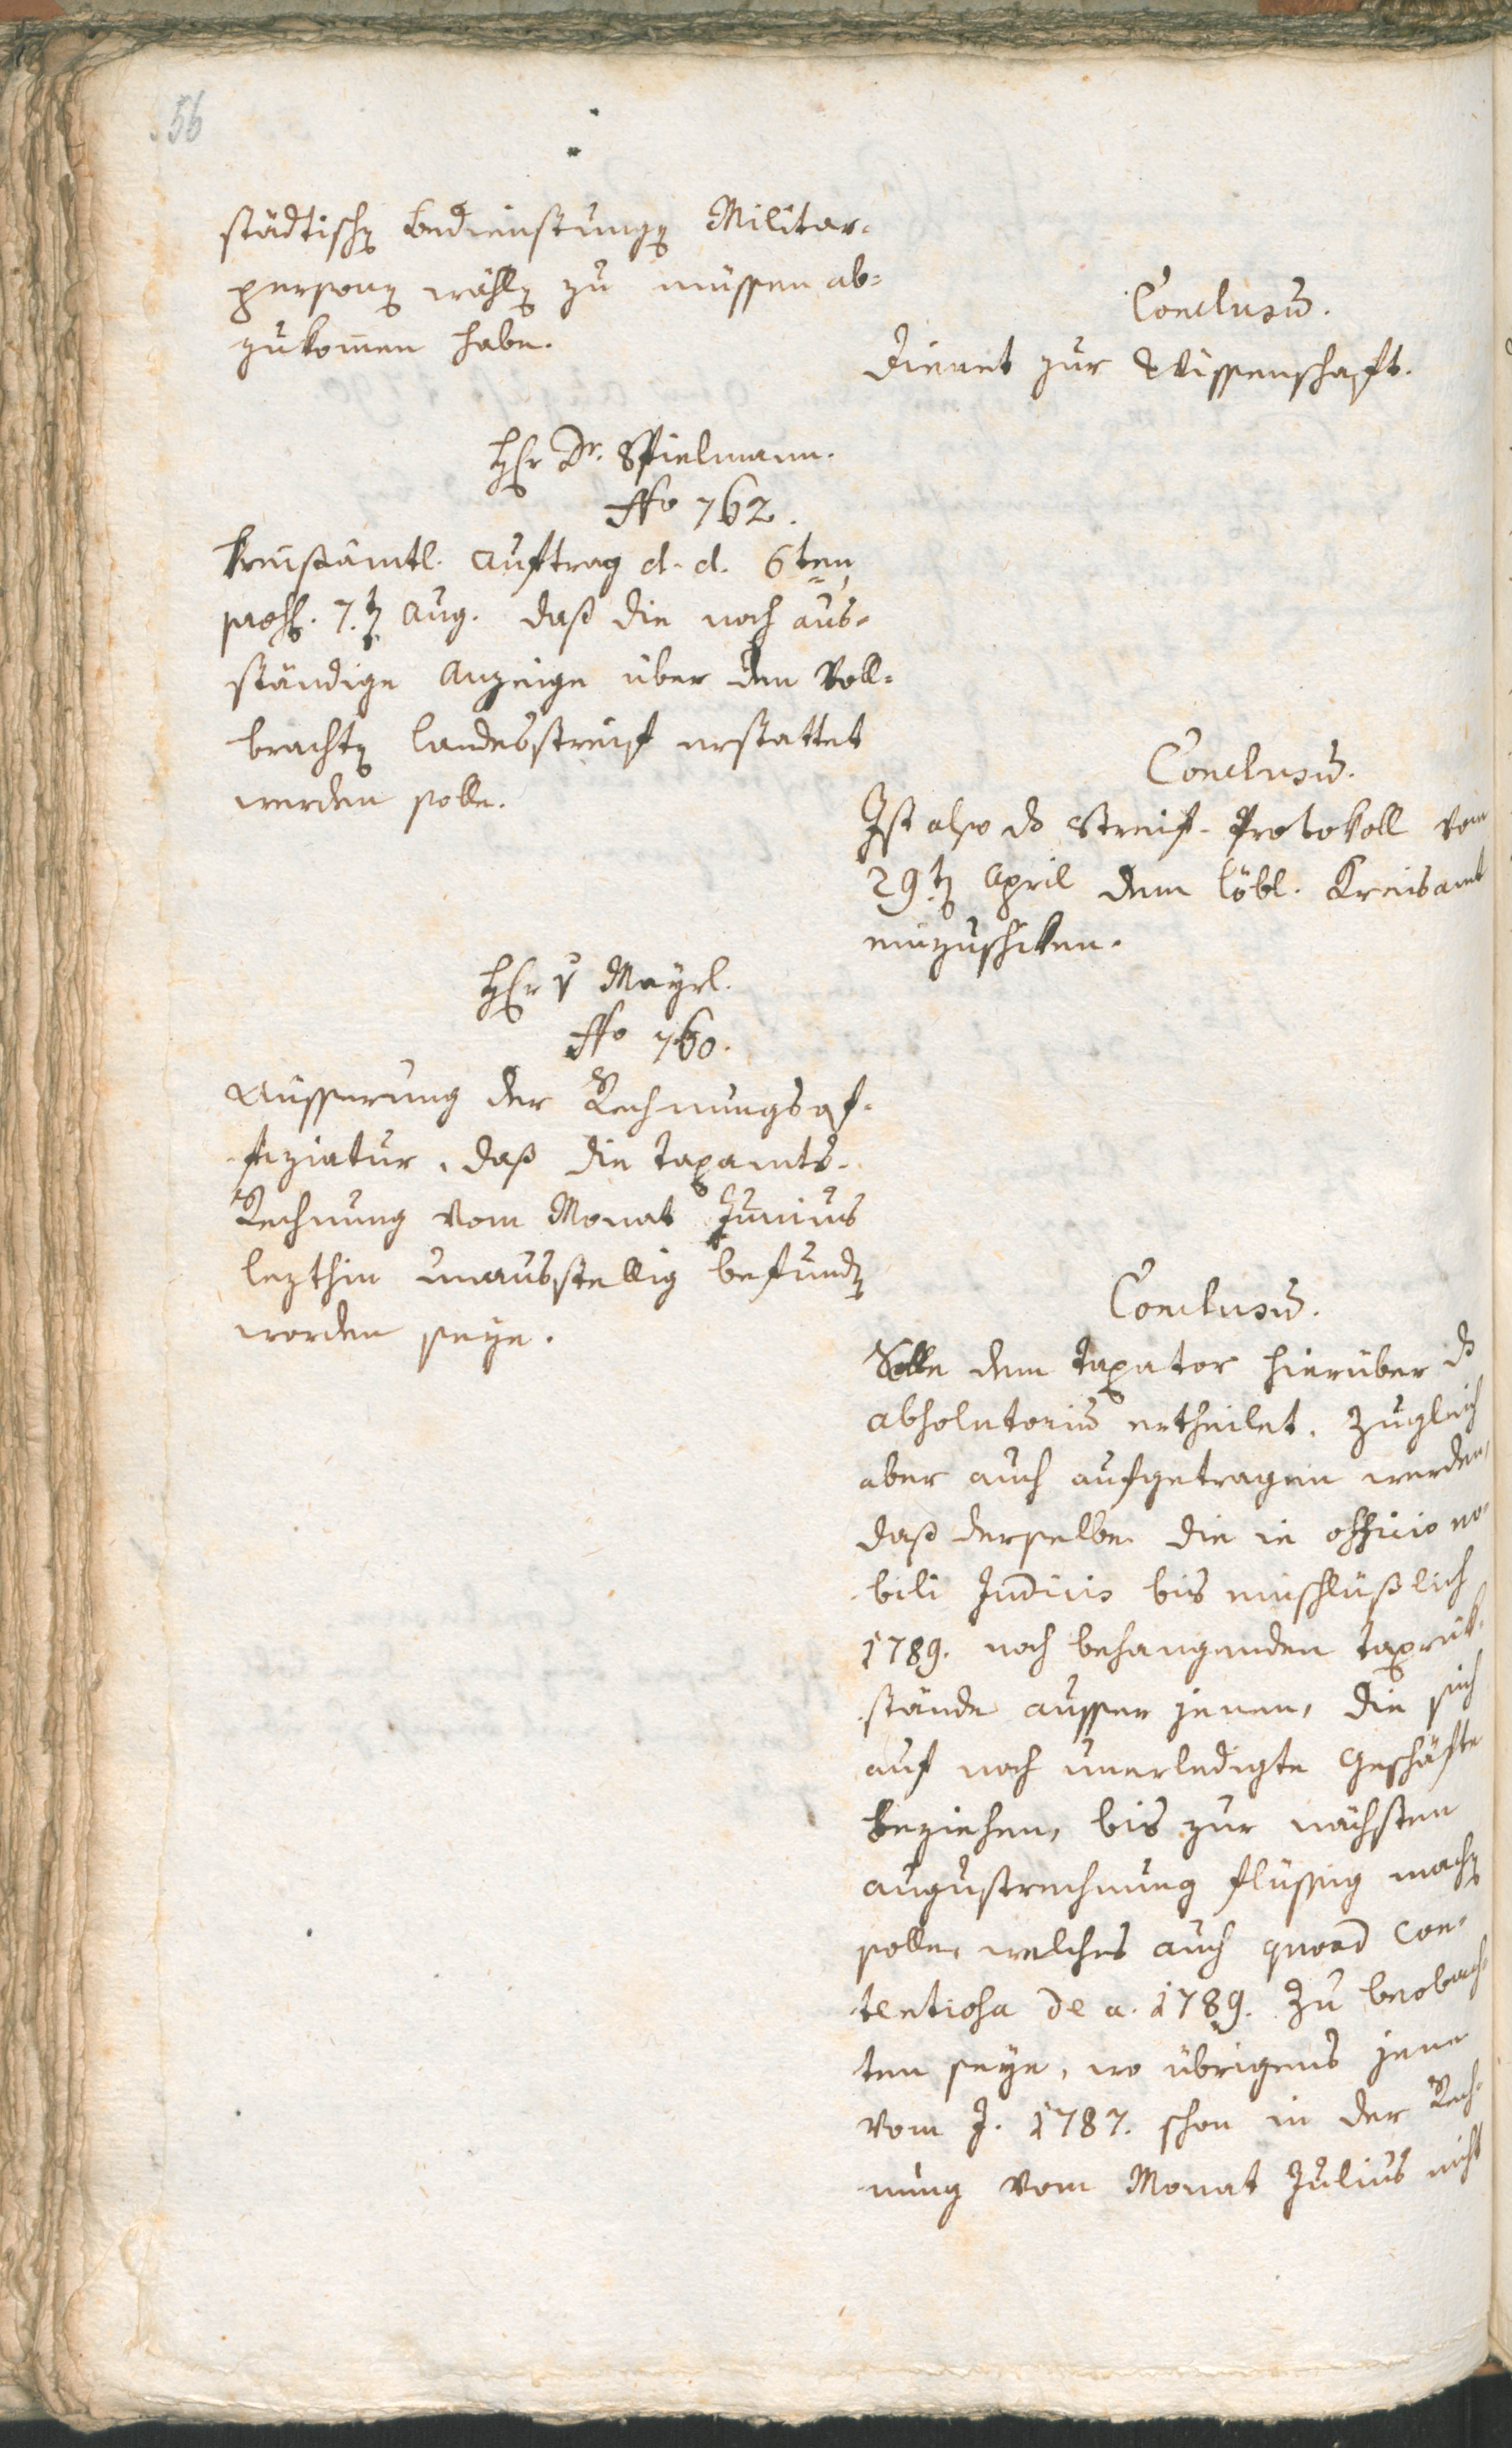 56
städtischen Bedienstungen Militar-
personen wählen zu müssen ab=
zukom̄en habe.
Conclusum̄.
Dienet zur Wissenschaft.
Herr Dr. Spielmann.
No 762.
Kreisämtl. Auftrag d. d. 6ten
praes. 7.ten Aug. daß die noch aus-
ständige Anzeige über den Voll-
brachten Landesstreif erstattet
werden solle.
Conclusum̄.
Ist also das Streif-Protokoll vom
29.ten April dem löbl. Kreisamt
einzuschiken.
Herr v Mayrl.
No 760.
Äusserung der Rechnungsof-
fiziatur, daß die Taxamts-
Rechnung vom Monat Junius
lezthin unausstellig befunden
worden seye.
Conclusum̄.
Solle dem Taxator hierüber das
absolutorium̄ ertheilet, zugleich
aber auch aufgetragen werden,
daß derselbe die in officio no-
bili Judicis bis einschlüßlich
1789. noch behangenden Taxrük-
stände ausser jenen, die sich
auf noch unerledigte Geschäfte
beziehen, bis zur nächsten
Augustrechnung flüssig machen
solle, welches auch quoad con-
tentiosa de a. 1789. zu beobach-
ten seye, wo übrigens jene
vom J. 1787. schon in der Rech-
nung vom Monat Julius nicht